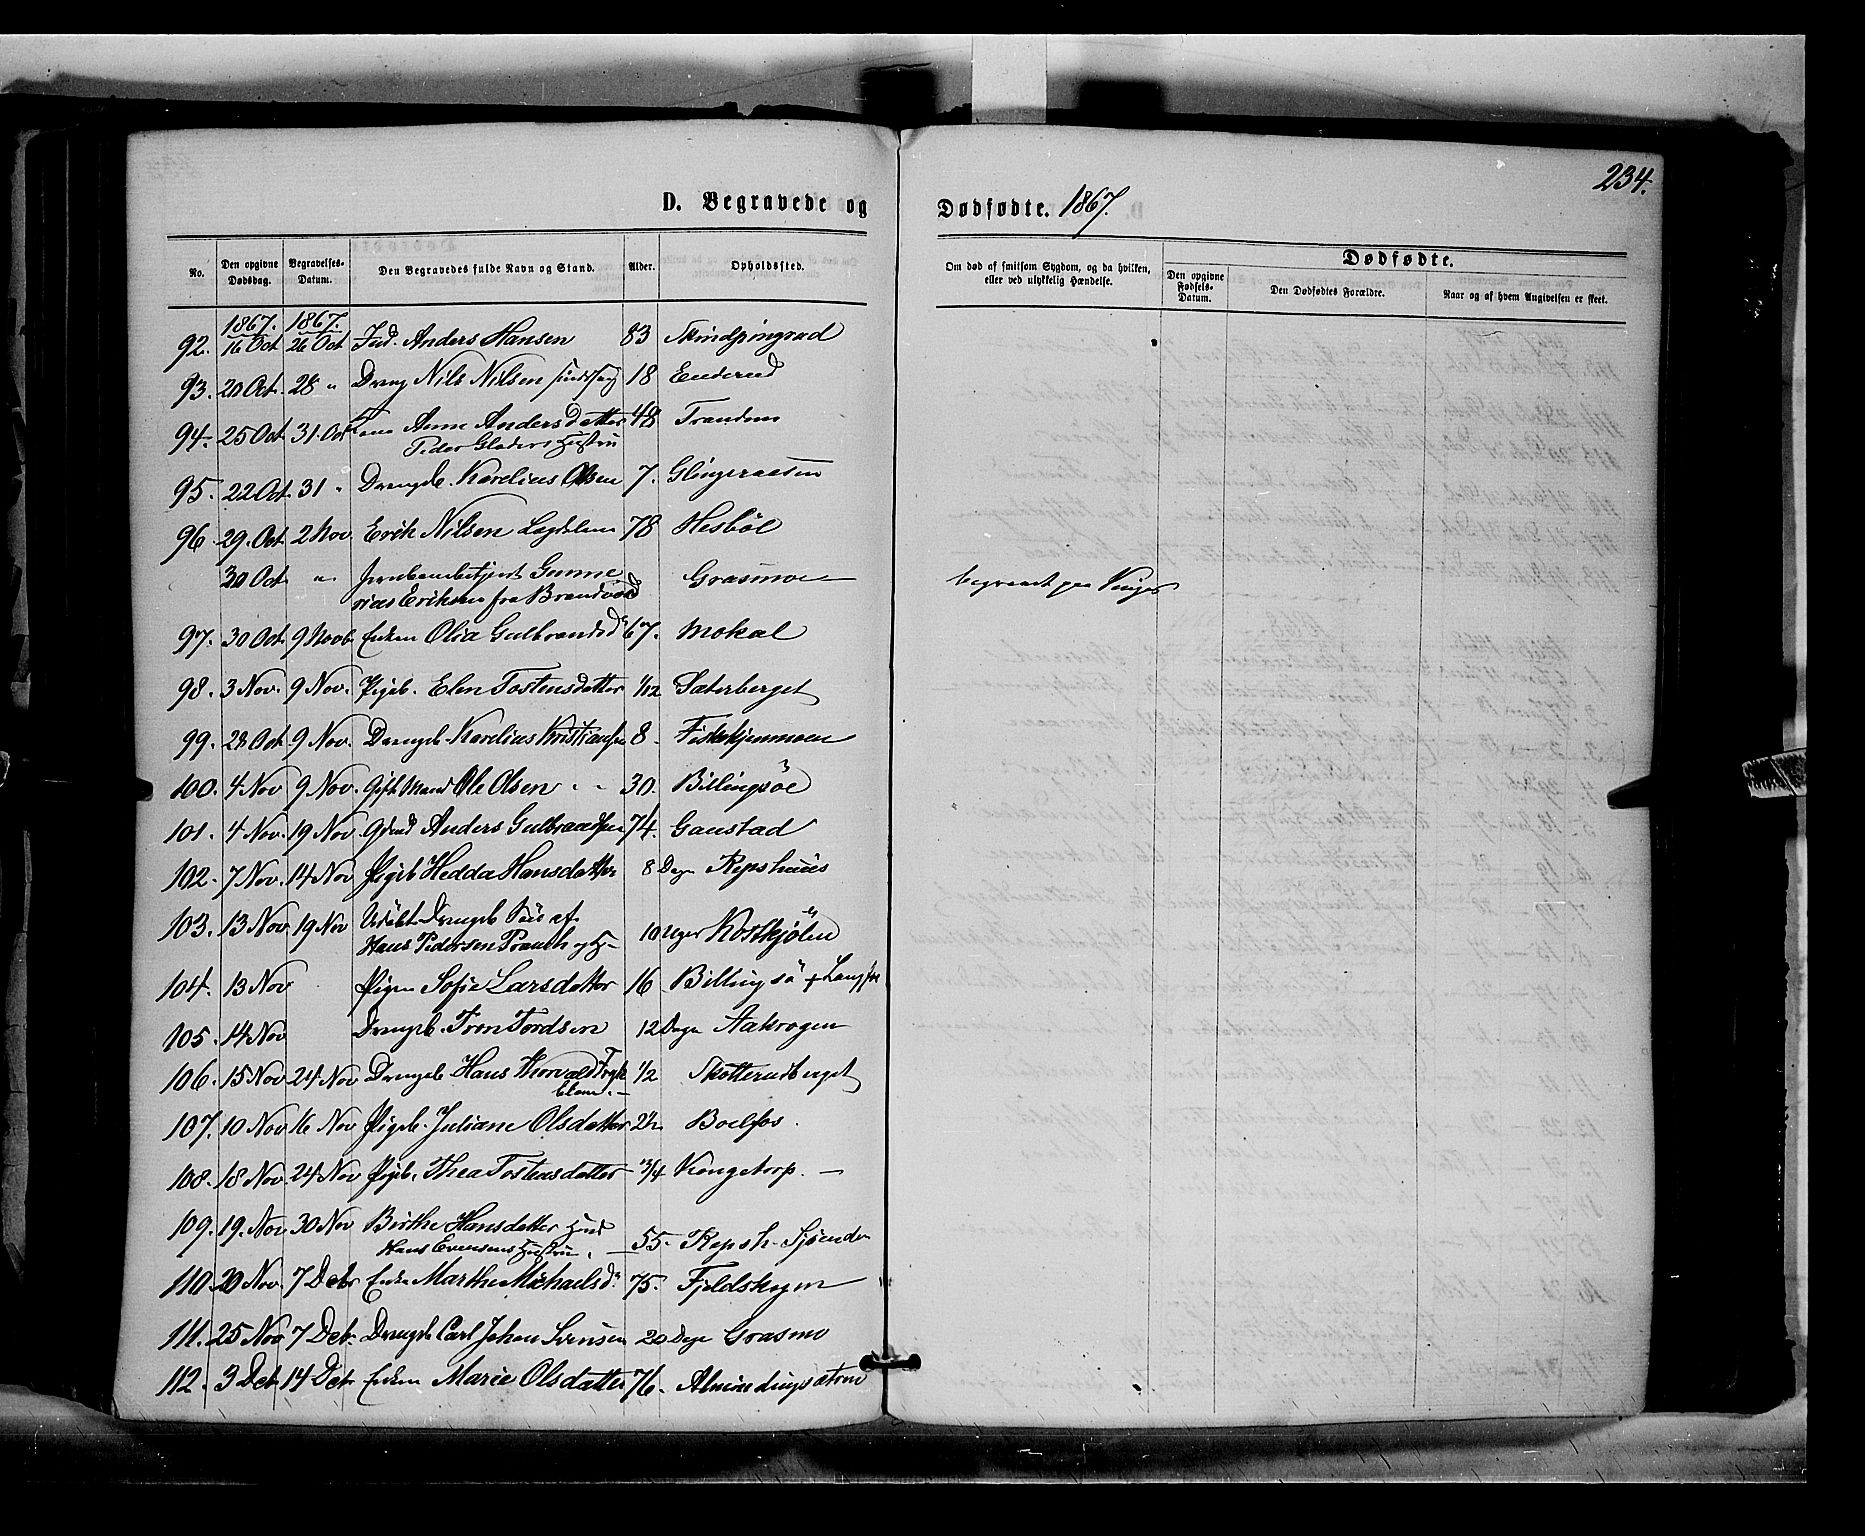 234.
D. Begravede og Dødfødte. 1867.
No. Den opgivne Dødsdag. Begravelses-Datum. Den Begravedes fulde Navn og Stand. Alder. Opholdssted. Om død af smitsom Sygdom, og da hvilken, eller ved ulykkelig Hændelse. Dødfødte. Den opgivne Fødsels-Datum. Den Dødfødtes Forældre. Naar og af hvem Angivelsen er skeet.
1867. 1867.
92. 16 Oct 26 Oct Ind. Anders Hansen 83
93. 20 Oct. 28 " Dreng Nils Nilsen 18 Enderud
94. 25 Oct 31. Oct Kone Anne Andersdatter 48
Peder Hustru
95. 22 Oct. 31 " Drengb. Karelius Olsen 7.
96. 29. Oct. 2 Nov. Erik Nilsen Lægdslem 78 Hesböl
30 Oct " Gunne Grasmoe begravet paa Vinger
Eriksen fra Brandvold
97. 30 Oct. 9 Novb. Enken Olia Gulbrandsd 67. Mokal
98. 3 Nov. 9 Nov. Pigeb. Elen Tostensdatter 1/12 Sæterberget
99. 28 Oct. 9 Nov. Drengb. Karelius Kristiansen 8
100. 4 Nov 9 Nov. Gift Mand Ole Olsen " " 30. Billingsöe
101. 4 Nov. 19 Nov. Anders Gulbrandsen 74. Gaustad
102. 7 Nov. 14 Nov Pigeb Hedda Hansdatter 8 Dage Repshuus
103. 13 Nov. 19 Nov Udöbt Drengeb af
Hans Pedersen 10 Uger
104. 13 Nov Pigen Sofie Larsdatter 16 Billingsö
105. 14 Nov Drengeb. Tron Tordsen 12 Dage Aakrogen
106. 15 Nov 24 Nov Drengeb Hans Thorvald 1/2 Skotterudberget
107. 10 Nov 16 Nov Pigeb. Juliane Olsdatter 2 1/2 Boelfos.
108. 18 Nov 24 Nov Pigeb. Thea Tostensdatter 3/4 Kongetorp. —
109. 19. Nov 30 Nov Birthe Hansdatter
Hans Evensens Hustru. 55.
110. 20 Nov. 7 Decb Enke Marthe Michaelsd. 75. Fjeldskogen
111. 25 Nov 7 Dcb. Drengeb Carl Johan Svensen 20 Dage Grasmo
112. 3 Dcb 14 Dcb. Enken Marie Olsdatter 76.